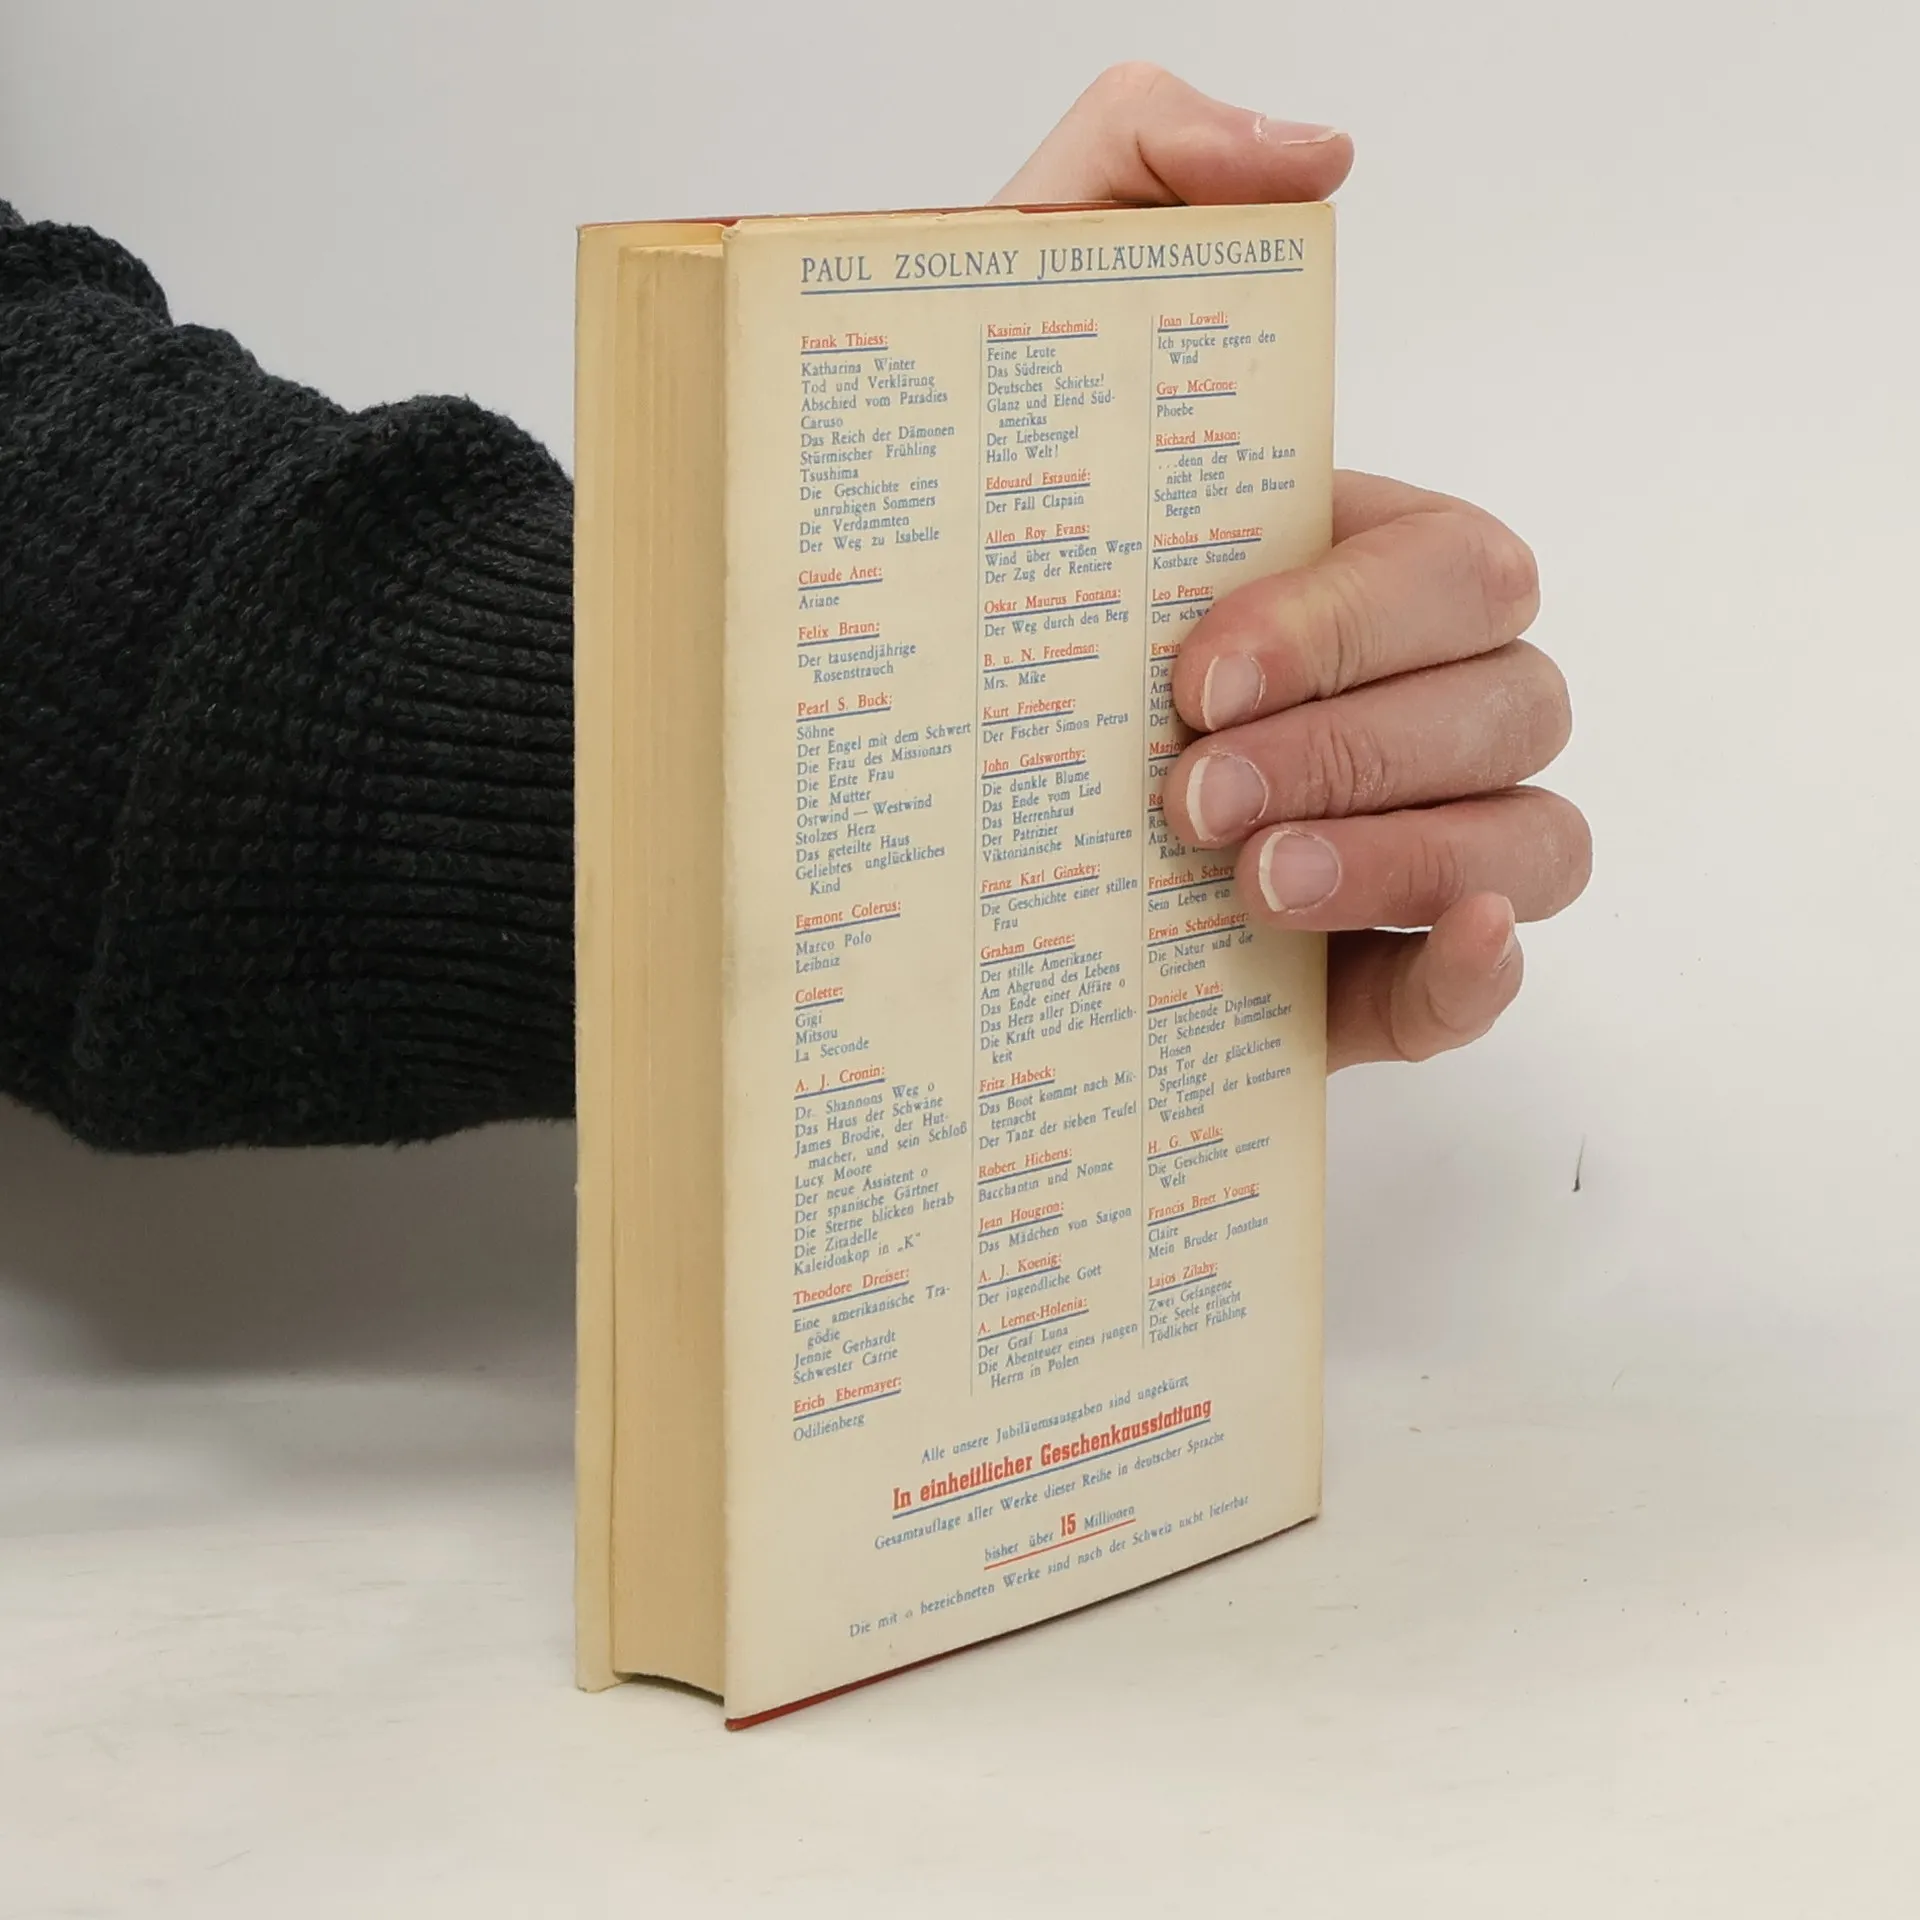 PAUL ZSOLNAY JUBILÄUMSAUSGABEN
Frank Thiess:
Katharina Winter
Tod und Verklärung
Abschied vom Paradies
Caruso
Das Reich der Dämonen
Stürmischer Frühling
Tsushima
Die Geschichte eines
unruhigen Sommers
Die Verdammten
Der Weg zu Isabelle
Claude Anet:
Ariane
Felix Braun:
Der tausendjährige
Rosenstrauch
Pearl S. Buck:
Söhne
Der Engel mit dem Schwert
Die Frau des Missionars
Die Erste Frau
Die Mutter
Ostwind — Westwind
Stolzes Herz
Das geteilte Haus
Geliebtes unglückliches
Kind
Egmont Colerus:
Marco Polo
Leibniz
Colette:
Gigi
Mitsou
La Seconde
A. J. Cronin:
Dr. Shannons Weg o
Das Haus der Schwäne
James Brodie, der Hut-
macher, und sein Schloß
Lucy Moore
Der neue Assistent o
Der spanische Gärtner
Die Sterne blicken herab
Die Zitadelle
Kaleidoskop in „K"
Theodore Dreiser:
Eine amerikanische Tra-
gödie
Jennie Gerhardt
Schwester Carrie
Erich Ebermayer:
Odilienberg
Kasimir Edschmid:
Feine Leute
Das Südreich
Deutsches Schicksal
Glanz und Elend Süd-
amerikas
Der Liebesengel
Hallo Welt!
Edouard Estaunié:
Der Fall Clapain
Allen Roy Evans:
Wind über weißen Wegen
Der Zug der Rentiere
Oskar Maurus Fontana:
Der Weg durch den Berg
B. u. N. Freedman:
Mrs. Mike
Kurt Frieberger:
Der Fischer Simon Petrus
John Galsworthy:
Die dunkle Blume
Das Ende vom Lied
Das Herrenhaus
Der Patrizier
Viktorianische Miniaturen
Franz Karl Ginzkey:
Die Geschichte einer stillen
Frau
Graham Greene:
Der stille Amerikaner
Am Abgrund des Lebens
Das Ende einer Affäre o
Das Herz aller Dinge
Die Kraft und die Herrlich-
keit
Fritz Habeck:
Das Boot kommt nach Mit-
ternacht
Der Tanz der sieben Teufel
Robert Hichens:
Bacchantin und Nonne
Jean Hougron:
Das Mädchen von Saigon
A. J. Koenig:
Der jugendliche Gott
A. Lernet-Holenia:
Der Graf Luna
Die Abenteuer eines jungen
Herrn in Polen
Joan Lowell:
Ich spucke gegen den
Wind
Guy McCrone:
Phoebe
Richard Mason:
...denn der Wind kann
nicht lesen
Schatten über den Blauen
Bergen
Nicholas Monsarrat:
Kostbare Stunden
Leo Perutz:
Der
Erwin
Die
Der
Der
Aus
Roda
Friedrich
Sein Leben ein
Erwin Schrödinger:
Die Natur und die
Griechen
Daniele Varè:
Der lachende Diplomat
Der Schneider himmlischer
Hosen
Das Tor der glücklichen
Sperlinge
Der Tempel der kostbaren
Weisheit
H. G. Wells:
Die Geschichte unserer
Welt
Francis Brett Young:
Claire
Mein Bruder Jonathan
Lajos Zilahy:
Zwei Gefangene
Die Seele erlischt
Tödlicher Frühling
Alle unsere Jubiläumsausgaben sind ungekürzt
In einheitlicher Geschenkausstattung
Gesamtauflage aller Werke dieser Reihe in deutscher Sprache
bisher über 15 Millionen
Die mit o bezeichneten Werke sind nach der Schweiz nicht lieferbar